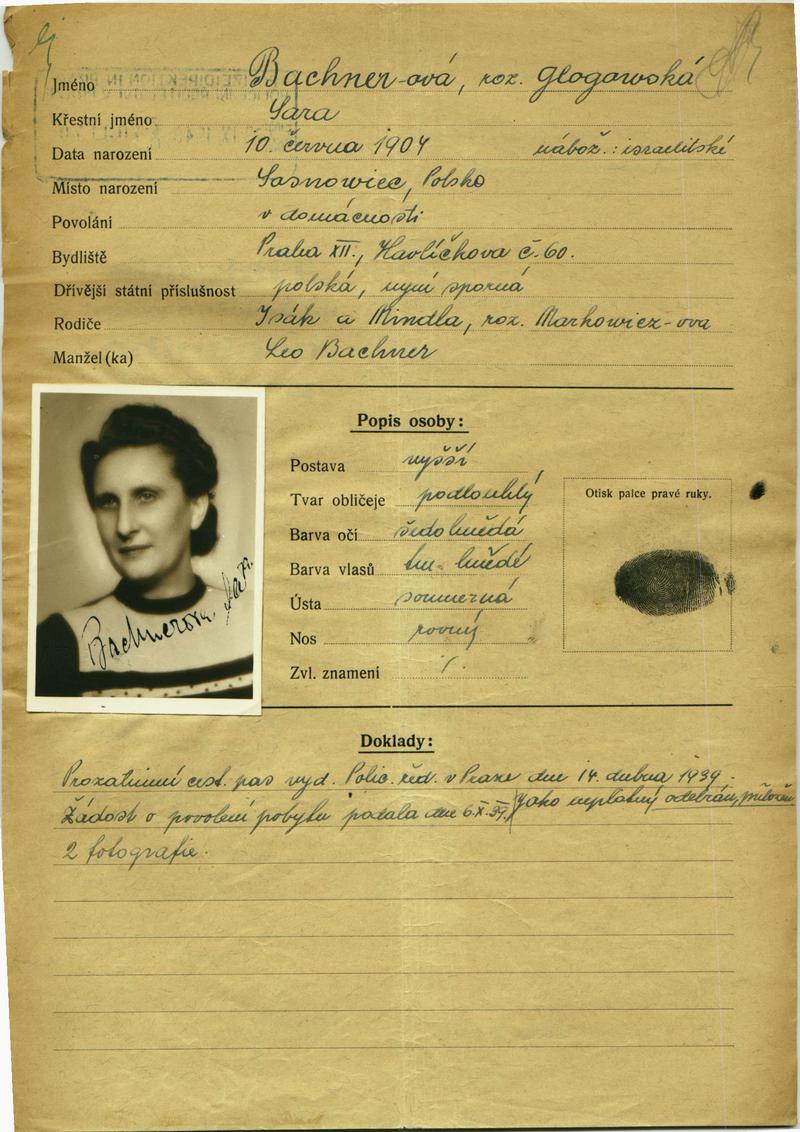 Jméno Bachner-ová, roz. Glogowská
Křestní jméno Sara
Data narození 10. června 1904 nábož.: israelitské
Místo narození Sosnowiec, Polsko
Povolání v domácnosti
Bydliště Praha XII., Havlíčkova č. 60.
Dřívější státní příslušnost polská, nyní sporná
Rodiče Isák a Mindla, roz. Markowicz-ova
Manžel (ka) Leo Bachner
Popis osoby:
Postava vyšší
Tvar obličeje podlouhlý
Barva očí šedohnědá
Barva vlasů tm. hnědé
Ústa souměrná
Nos rovný
Zvl. znamení
Otisk palce pravé ruky.
Bachnerova
Doklady:
Prozatimní cest. pas vyd. Polic. řed. v Praze dne 14. dubna 1939.
Žádost o povolení pobytu podala dne 6.X.39. jako neplatný odebrán,
2 fotografie.